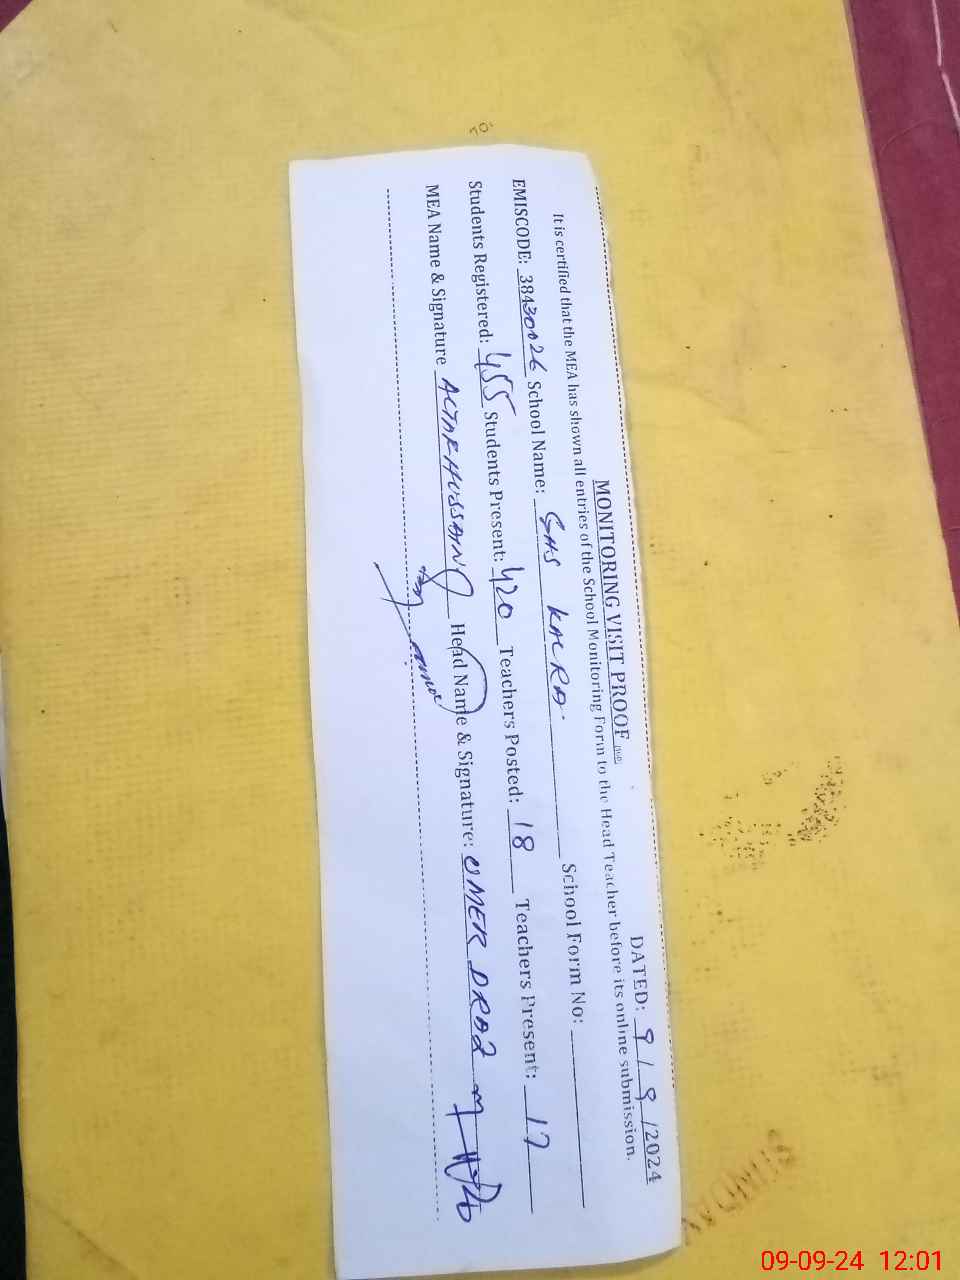 MONITORING VISIT PROOF
DATED: 9 / 9 /2024
It is certified that the MEA has shown all entries of the School Monitoring Form to the Head Teacher before its online submission.
EMISCODE: 38430026 School Name: GHS KALRA. School Form No:
Students Registered: 455 Students Present: 420 Teachers Posted: 18 Teachers Present: 17
MEA Name & Signature AKTAR HUSSAIN Head Name & Signature: UMER DRAZ
09-09-24 12:01